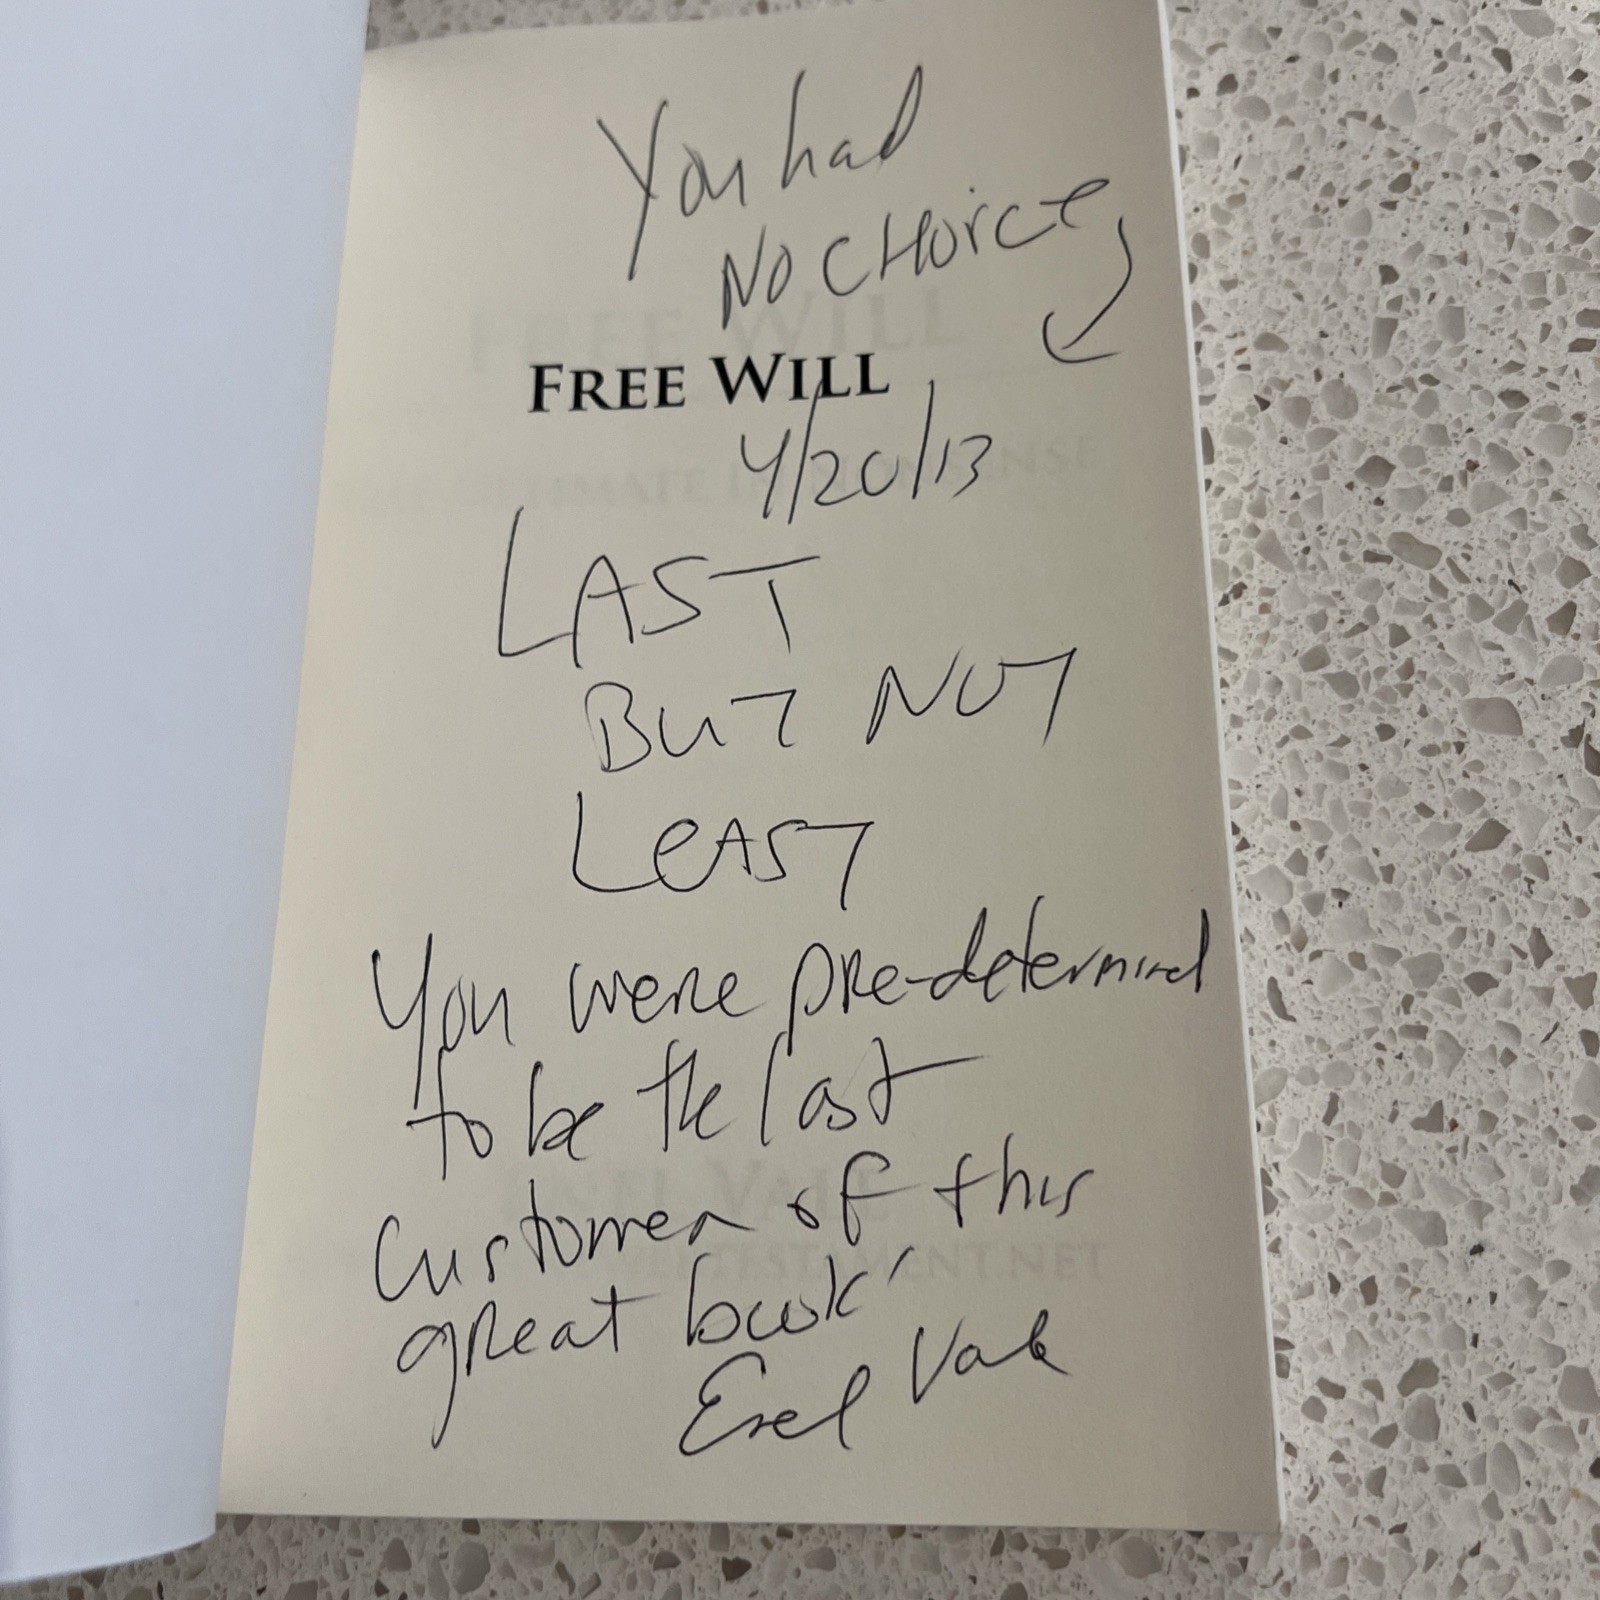 You had
NO CHOICE
FREE WILL
4/20/13
LAST
BUT NOT
LEAST
You were pre-determined
to be the last
customer of this
great book
Enel Vale